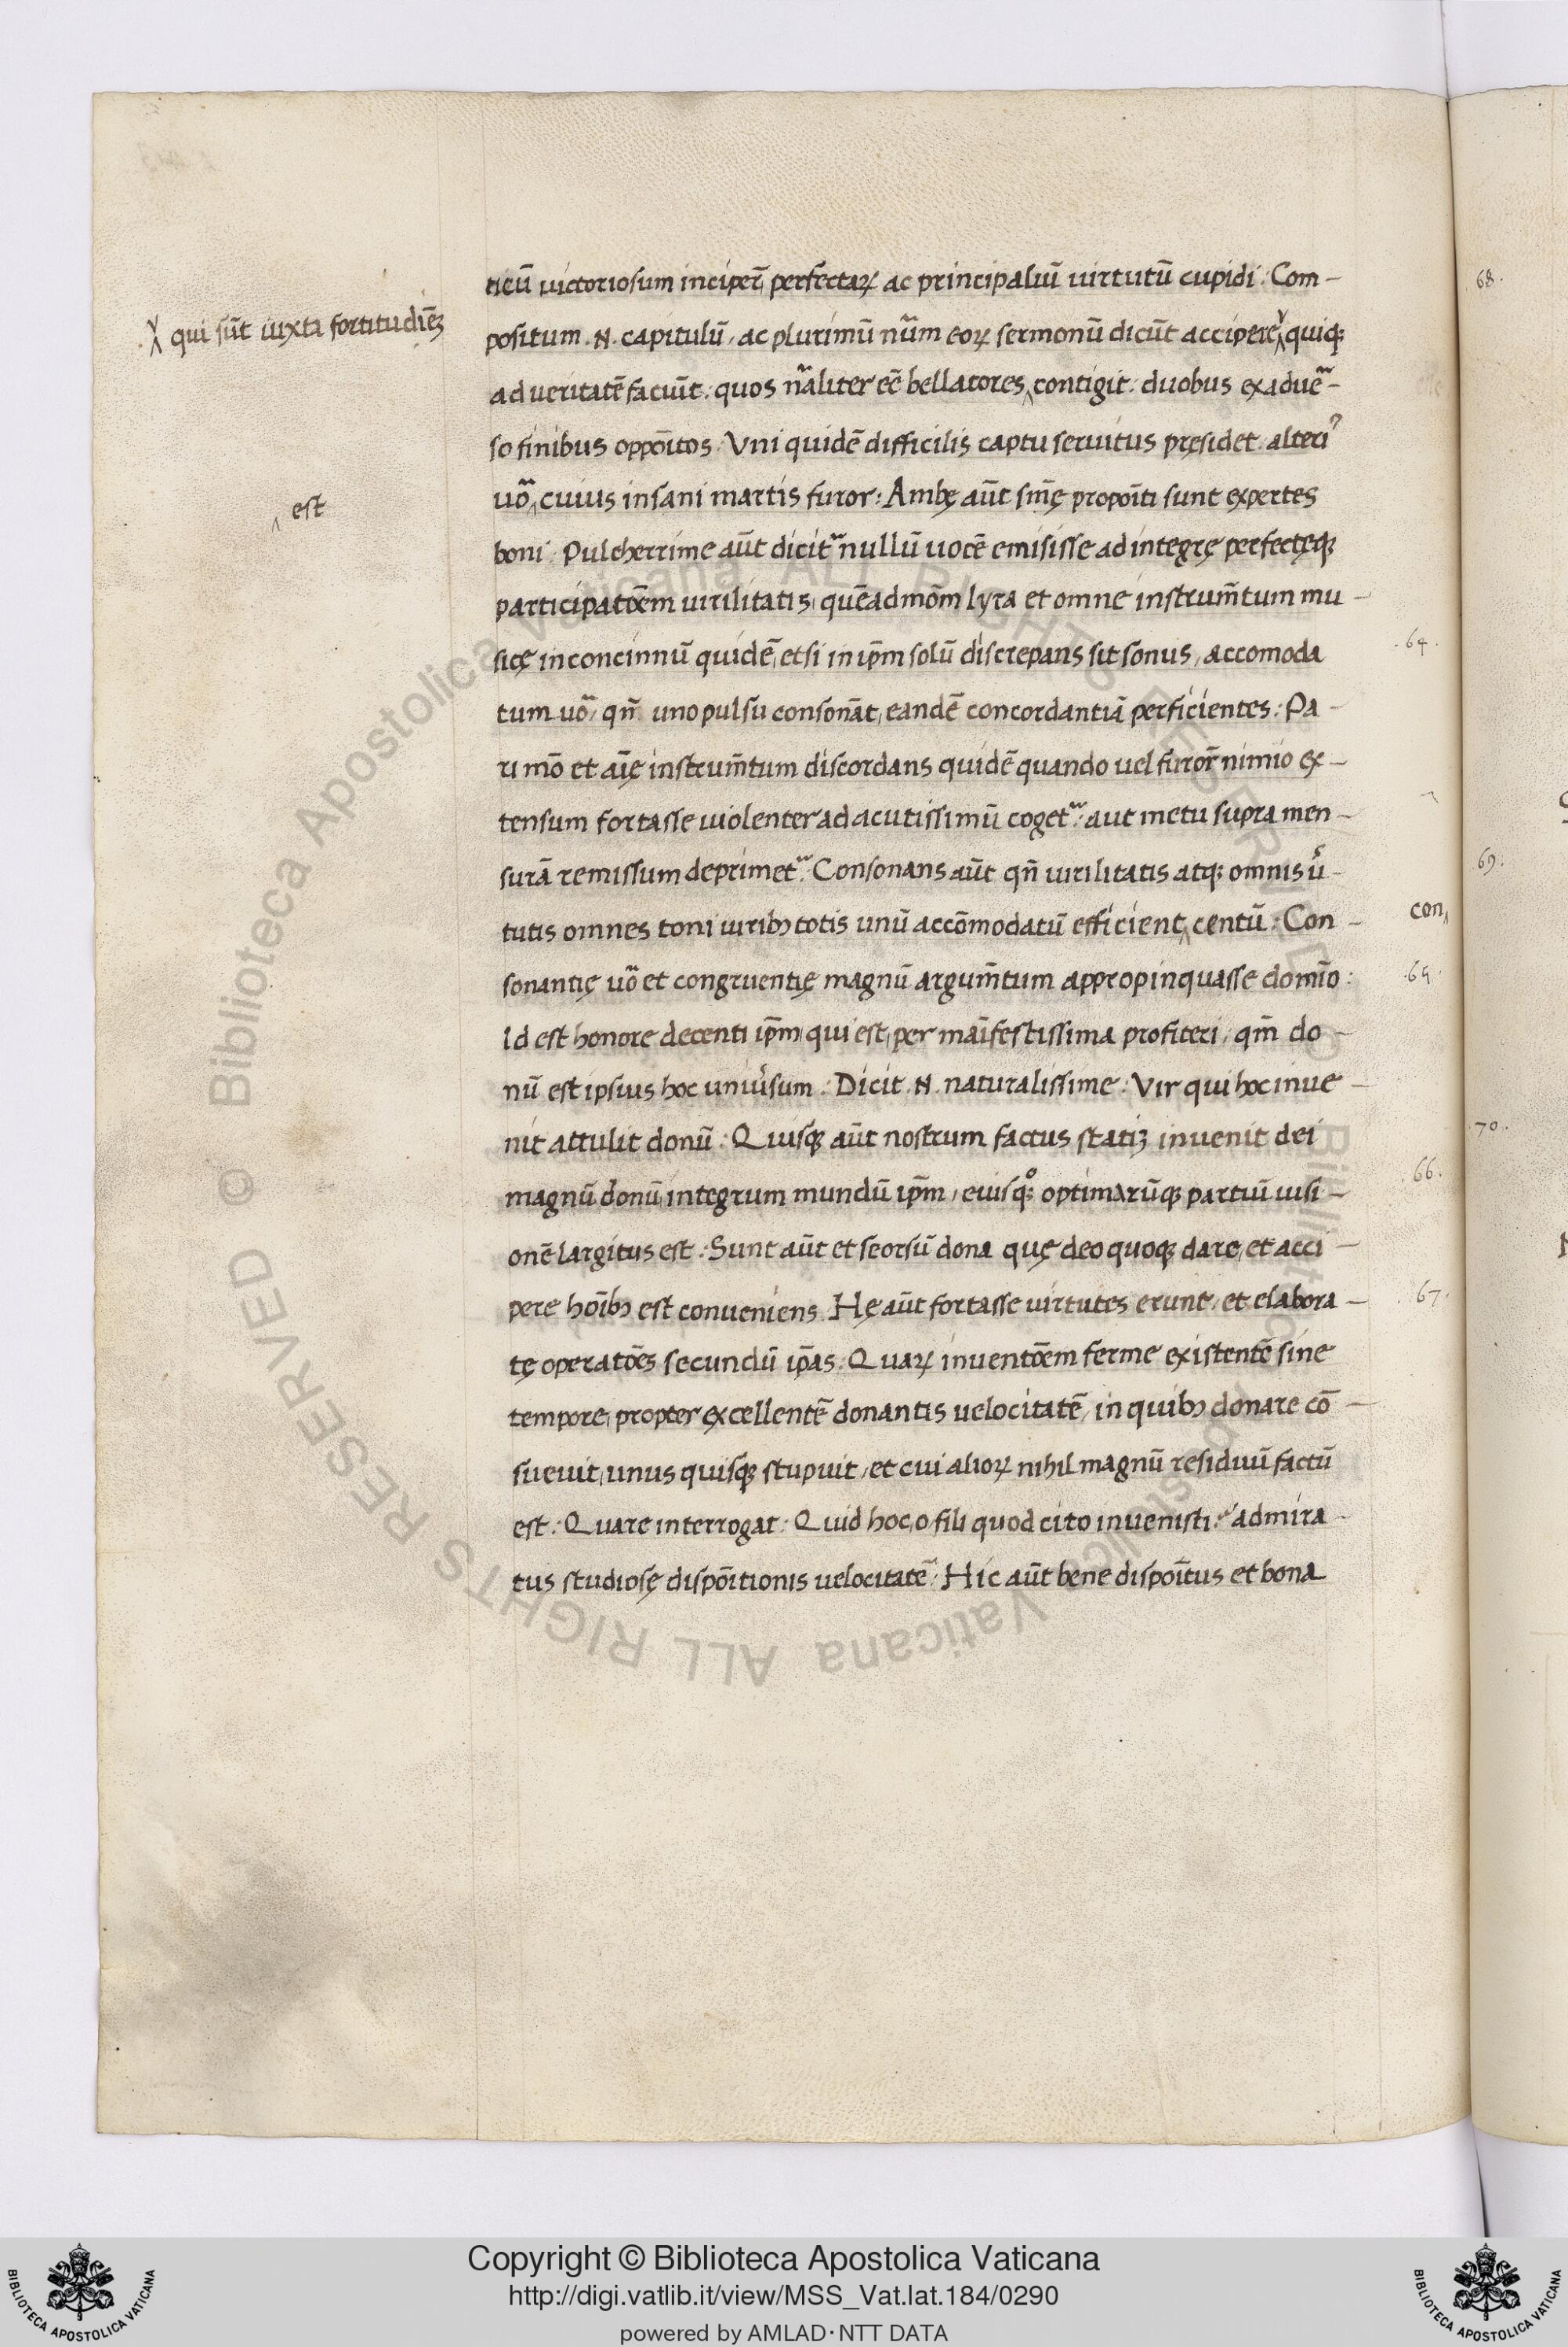 ticū victoriosum inciper̄ perfectaꝝ ac principaliū uirtutū cupidi : Com-
qui sūt iuxta fortitudīeꝫ
positum .N. capitulū, ac plurimū nūm eoꝝ sermonū dicūt accipere quiqꝫ
ad ueritatē facūit : quos nāliter eē bellatores contigit : duobus ex adue-
so finibus oppōitos : Vni quidē difficilis captu seruitus pręsidet alteri
uō cuius insani martis furor : Ambę aūt smę̄ propōiti sunt expertes
est
boni : Pulcherrime aūt dicit nullū uocē emisisse ad integrę perfectęqꝫ
participatōem uirilitatis, quēadmōm lyra et omne instrum̄tum mu-
sicę inconcinnū quidē, et si in ip̄m solū discrepans sit sonus, accomoda
.64.
tum uō, qn̄ uno pulsu consonāt, eandē concordantiā perficientes : Pa-
ri mō et aīę instrum̄tum discordans quidē quando uel furor̄ nimio ex-
tensum fortasse uiolenter ad acutissimū coget : aut metu supra men-
surā remissum deprimet : Consonans aūt qn̄ uirilitatis atqꝫ omnis ū-
tutis omnes toni uiribꝫ totis unū accōmodatū efficient centū : Con-
con
sonantię uō et congruentię magnū argum̄tum appropinquasse domīo :
.65.
Id est honore decenti ip̄m, qui est, per māifestissima profiteri, qm̄ do-
nū est ipsius hoc uniūsum : Dicit .N. naturalissime : Vir qui hoc inue-
nit attulit donū : Quisqꝫ aūt nostrum factus statiꝫ inuenit dei
magnū donū integrum mundū ip̄m, eiusqꝫ optimarūqꝫ partiū uisi-
.66.
onē largitus est : Sunt aūt et seorsū dona quę deo quoqꝫ dare, et acci-
pere hōibꝫ est conueniens. Hę aūt fortasse uirtutes erunt, et elabora-
.67.
tę operatōes secundū ip̄as : Quaꝝ inuentōem ferme existentē sine
tempore, propter excellentē donantis uelocitatē, in quibꝫ donare cō-
sueuit, unus quisqꝫ stupuit, et cui alioꝝ nihil magnū residuū factū
est : Quare interrogat : Quid hoc, o fili quod cito inuenisti : admira-
tus studiosę dispōitionis uelocitatē : Hic aūt bene dispōitus et bona
68.
69.
70.
© Biblioteca Apostolica Vaticana ALL RIGHTS RESERVED
Copyright © Biblioteca Apostolica Vaticana
http://digi.vatlib.it/view/MSS_Vat.lat.184/0290
powered by AMLAD·NTT DATA
BIBLIOTECA APOSTOLICA VATICANA
BIBLIOTECA APOSTOLICA VATICANA